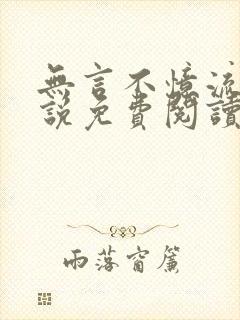 無言不憶流
說免費閱讀
雨落窗簾